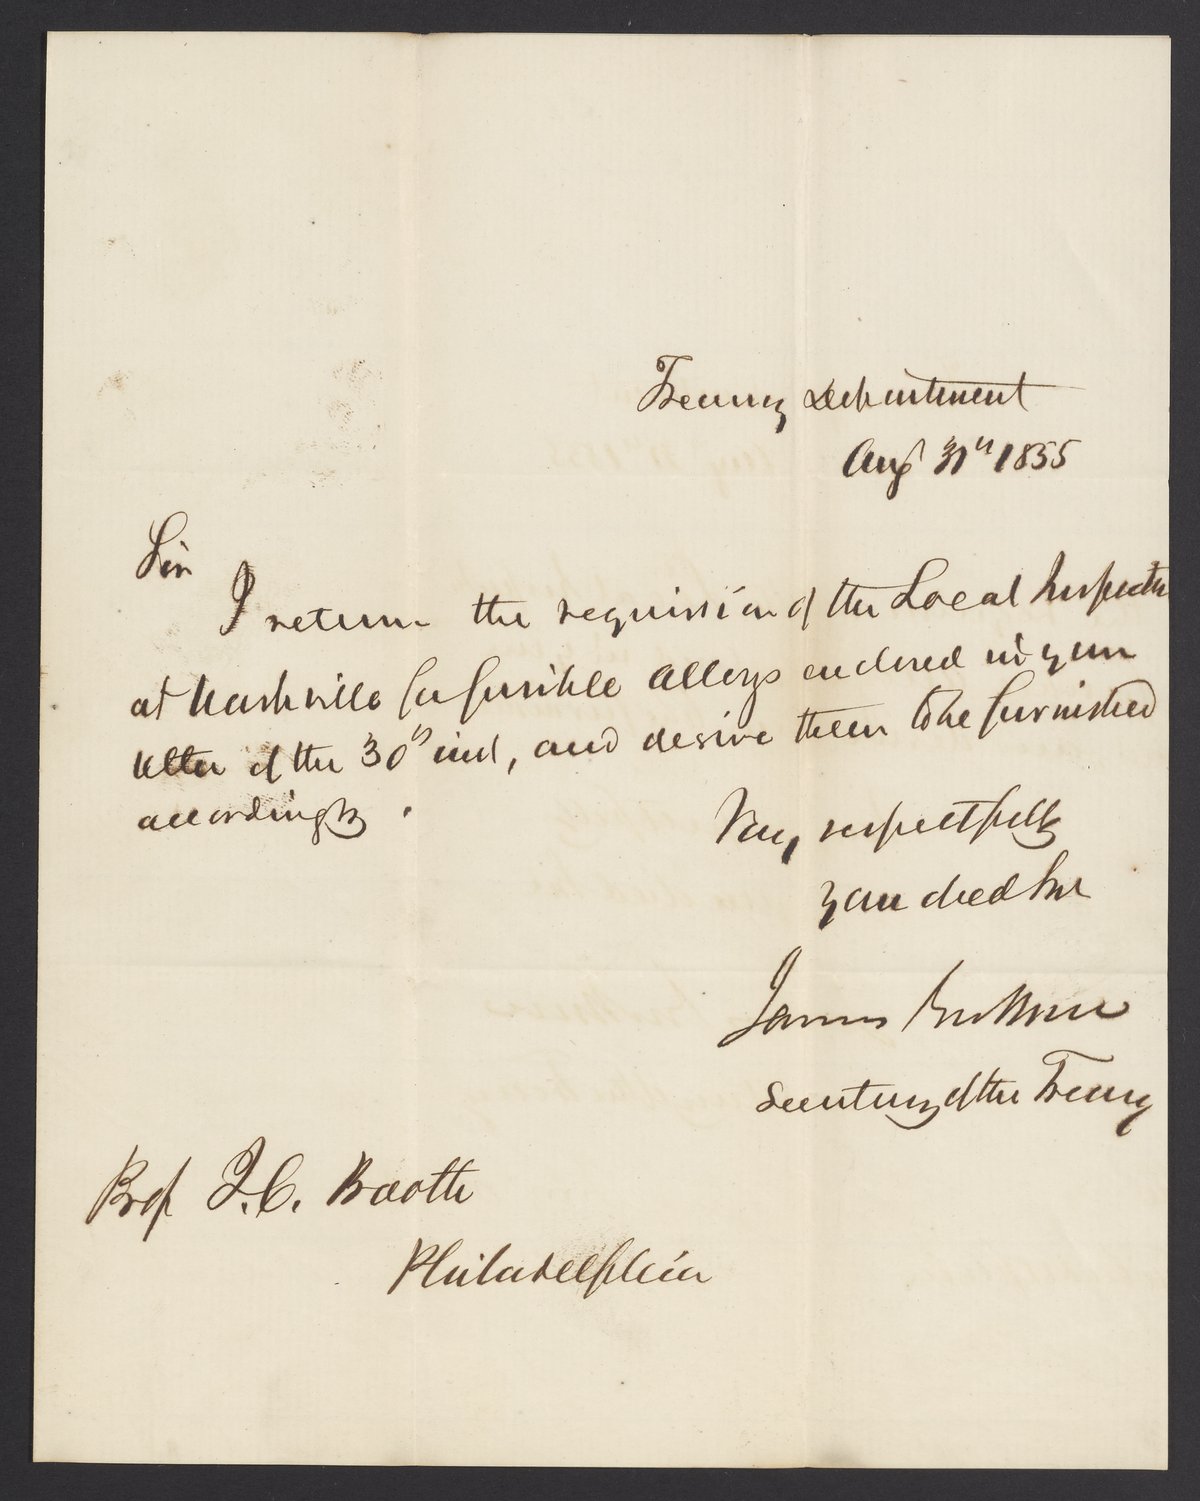 Treasury Department
Aug 31st 1855
Sir
I return the requisition of the Local Inspector
at Nashville for fusible Alloys enclosed in your
letter of the 30th inst, and desire them to be furnished
accordingly.
Very respectfully
your obed Svt
James Guthrie
Secretary of the Treasury
Prof J. C. Booth
Philadelphia